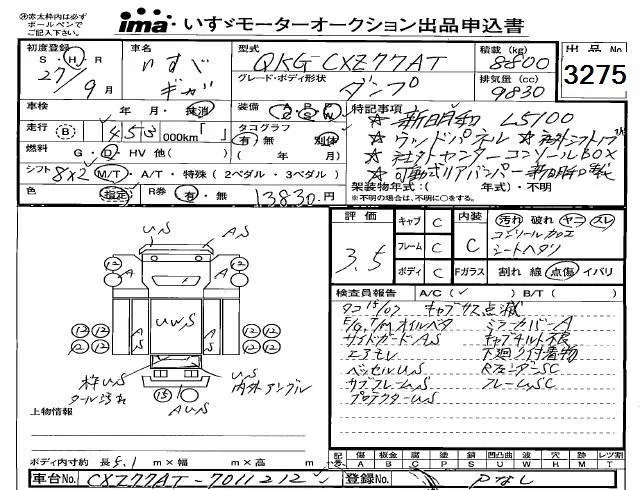 ※赤太枠内は必ず
ボールペンで
ご記入下さい。
ima いすゞモーターオークション出品申込書
初度登録 S・H・R 27年 9月
車名 いすゞ ギガ
型式 QKG-CXZ77AT
グレード・ボディ形状 ダンプ
積載 (kg) 8800
排気量 (cc) 9830
出品 No
3275
車検 年 月・抹消
装備 A P S W
特記事項
★新明和 L5100
走行 B 453,000km「 」
タコグラフ 有・無 別体
( 年 月)
★ウッドパネル ★社外シフトノブ
★社外センターコンソールBOX
★可動式リアバンパー 新明和製
燃料 G・D・HV 他( )
シフト 8x2 M/T・A/T・特殊(2ペダル・3ペダル)
色 指定 R券 有・無 13830円
架装物年式:( 年式)・不明
※不明の場合は、不明に○をする。
評価 3.5
キャブ C
フレーム C
ボディ C
内装 C
汚れ 破れ ヤニ スレ
コンソール加工
シートヘタリ
Fガラス 割れ 線 点傷 イバリ
US AS
12 12
A A
S UWS S
12 12 12 12
12 12 12 12
枠US US
ツール汚れ 内外アングル
15
AUS
検査員報告 A/C(✓) B/T( )
タコ15/07 キャブサス点滅
E/G,T/Mオイルベタ ミラーカバーA
サイドガードAS キャブチルト不良
エアモレ 下廻り付着物
ベッセルUS RフェンダーSC
サブフレームUS フレームSC
プロテクターUS
上物情報
ボディ内寸約 長 5.1 m×幅 m×高 m
記号 傷 A 板金 B 腐 C 塗 P 錆 S 凹凸曲 U 波 W 穴 H 跡 M レツ割 T
車台No. CXZ77AT-7011212
公認記録No. Pなし